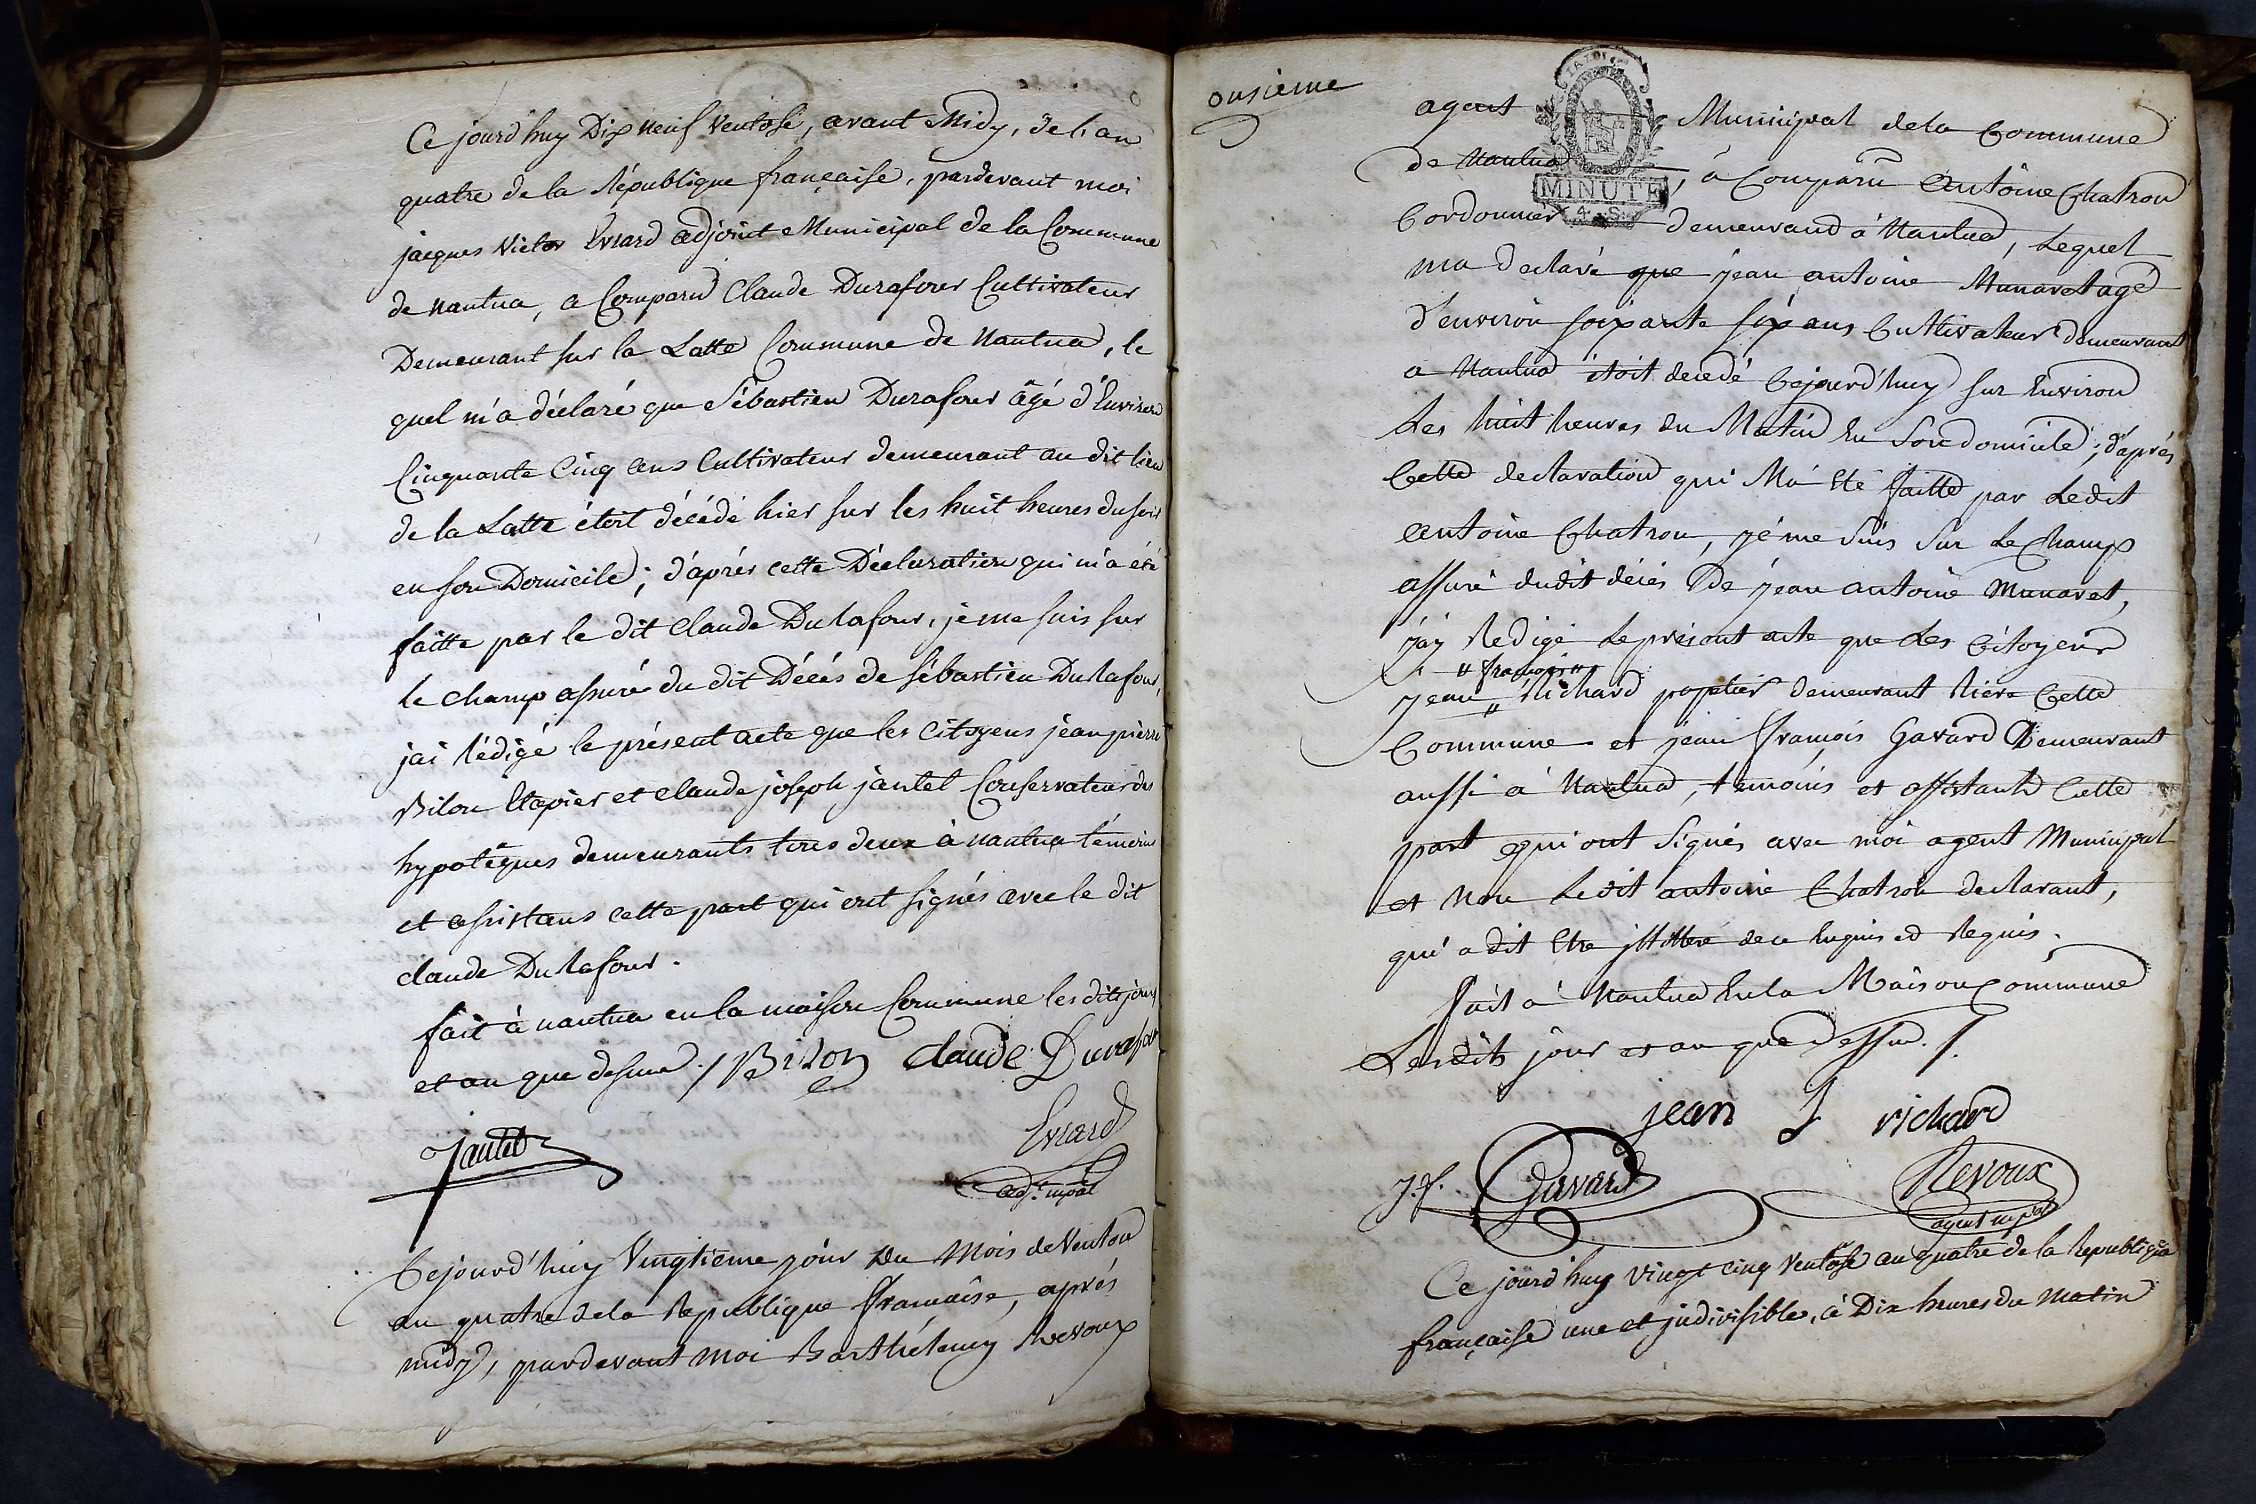 Ce jourd'huy Dix neuf ventose, avant Midy, de l'an
quatre de la République française, pardevant moi
jacques Victor Evrard adjoint Municipal de la Commune
de nantua, a Comparu Claude Durafour Cultivateur
Demeurant sur la Latte Commune de Nantua, le
quel m'a déclaré que Sébastien Durafour âgé d'Environ
Cinquante Cinq ans Cultivateur demeurant au dit lieu
de la Latte étoit décédé hier sur les huit heures du soir
en son Domicile; d'après cette Déclaration qui m'a été
faitte par le dit Claude Durafour, je me suis sur
le champ assuré du dit Décés de sébastien Durafour,
jai rédigé le présent acte que les Citoyens jean pierre
Bilon Etapier et claude joseph jantet Conservateur des
hypotêques demeurants tous deux à nantua témoins
et assistans cette part qui ont signés avec le dit
claude Durafour.
fait à nantua en la maison Commune les dits jour
et an que dessus ./ Bilon claude Durafour
Jantet Evrard
adj. mpal
Cejourd'huy Vingtieme jour du Mois de Ventou
an quatre de la Republique francaise, aprés
midy, pardevant moi Barthélemy Revoux
onsieme
agent Municipal de la Commune
de Nantua, à Comparu Antoine Chatron
Cordonnier demeurand à Nantua, Lequel
ma declaré que jean antoine Munaret agé
d'environ soixante six ans Cultivateur demeurant
a Nantua étoit decedé Cejourd'huy sur Environ
Les huit heures du Matin En Son domicile; d'aprés
Cette declaration qui M'a Eté faitte par Ledit
Antoine Chatron, je me suis Sur Le Champ
assuré dudit décés De jean antoine Munaret,
j'ay Redigé Le présent acte que Les Citoyens
" francois "
jean " Richard papetier demeurant Riere Cette
Commune et jean françois Gavard Demeurant
aussi à Nantua, temoins et assistants Cette
part qui ont Signés avec moi agent Municipal
et Non Ledit antoine Chatron declarant,
qui a dit Etre illitteré de ce Enquis et Requis.
fait à Nantua En la Maison Commune
Lesdits jour et an que Dessus ./.
jean f richard
J. f. Gavard Revoux
agent mpal
Ce jourd'huy vingt cinq ventose an quatre de la Republique
française une et indivisible, à Dix heures du Matin
MINUTE
4. S.